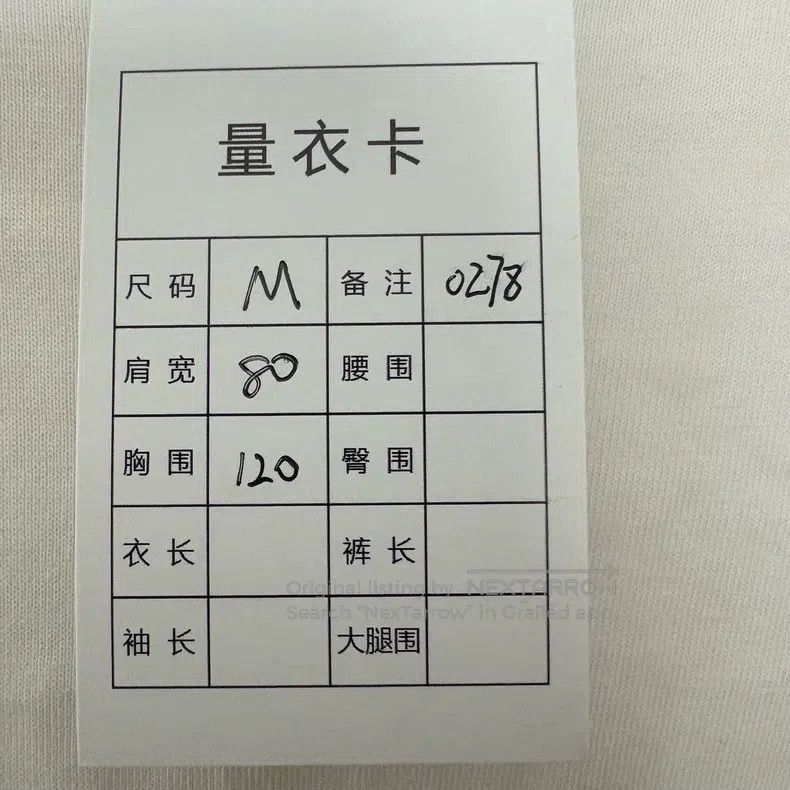 量衣卡
尺码 M 备注 0278
肩宽 80 腰围
胸围 120 臀围
衣长 裤长
Original listing by NEXTARROW
Search "NexTarrow" in Grailed app.
袖长 大腿围